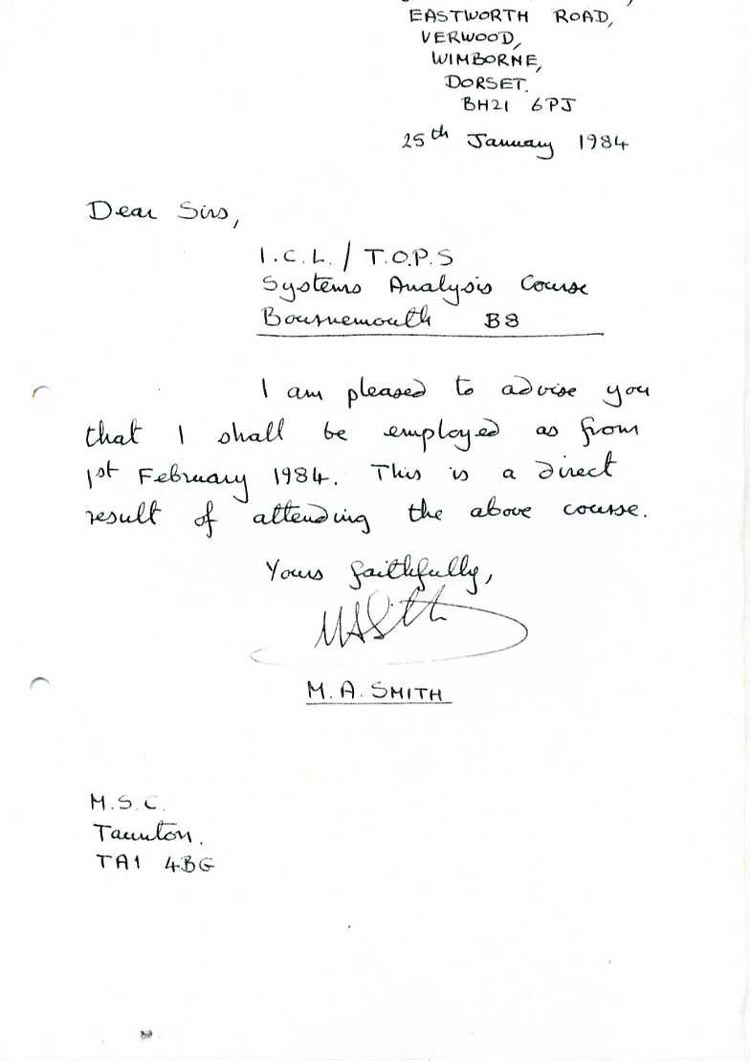 EASTWORTH ROAD,
VERWOOD,
WIMBORNE,
DORSET.
BH21 6PJ
25th January 1984
Dear Sirs,
I.C.L. / T.O.P.S
Systems Analysis Course
Bournemouth B8
I am pleased to advise you
that I shall be employed as from
1st February 1984. This is a direct
result of attending the above course.
Yours faithfully,
MASmith
M. A. SMITH
M.S.C.
Taunton.
TA1 4BG